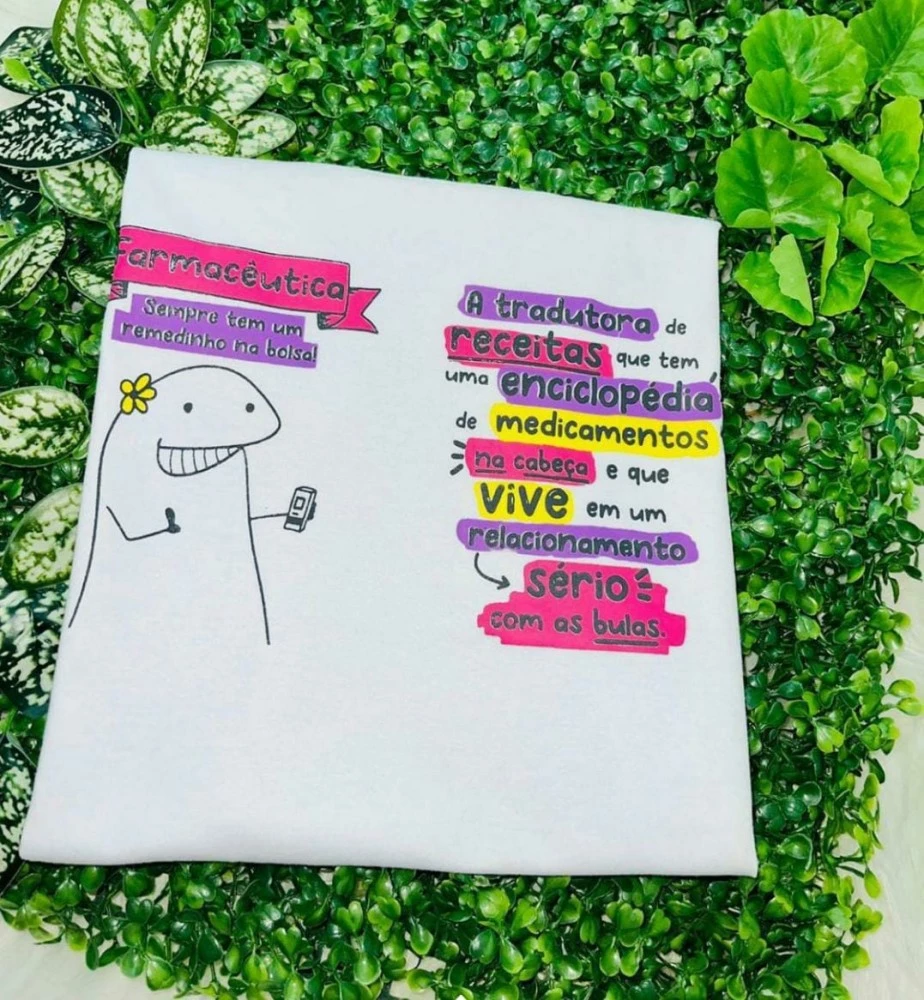 Farmacêutica
Sempre tem um
remedinho na bolsa!
A tradutora de
receitas que tem
uma enciclopédia
de medicamentos
na cabeça e que
vive em um
relacionamento
sério
com as bulas.